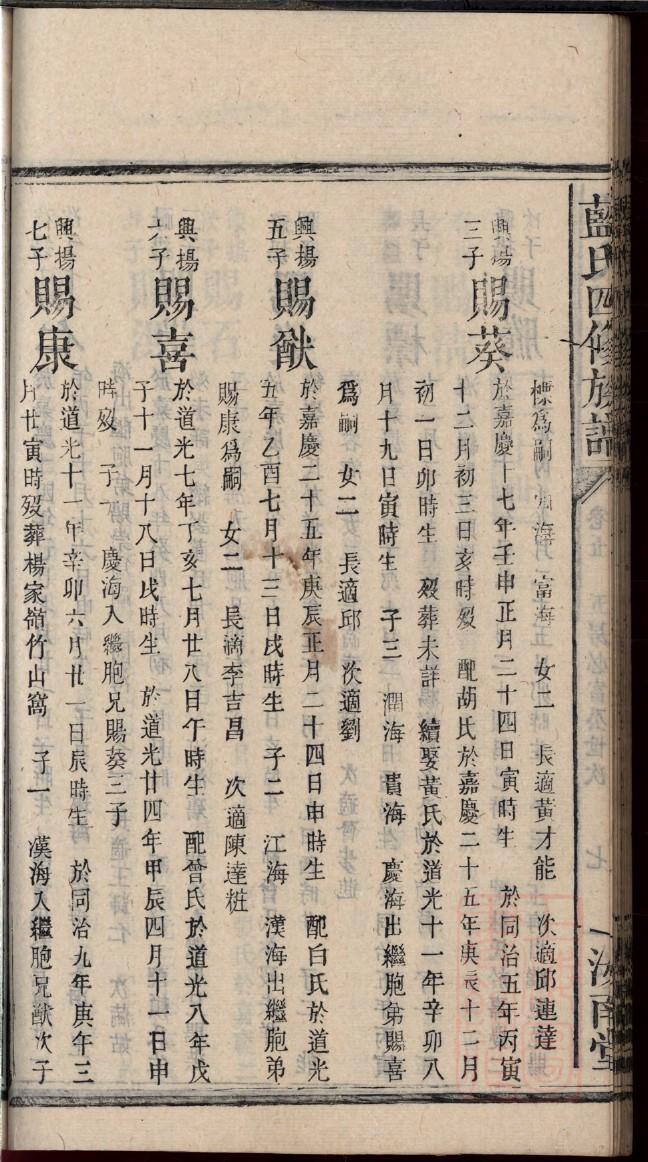 藍氏四修族譜
汝南堂
標為嗣　海　富海　女二　長適黃才能　次適邱連達
興揚三子 賜葵
於嘉慶十七年壬申正月二十四日寅時生　於同治五年丙寅
十二月初三日亥時歿　配胡氏於嘉慶二十五年庚辰十二月
初一日卯時生　歿葬未詳　續娶黃氏於道光十一年辛卯八
月十九日寅時生　子三　潤海　貴海　慶海出繼胞弟賜喜
為嗣　女二　長適邱　次適劉
興揚五子 賜猷
於嘉慶二十五年庚辰正月二十四日申時生　配白氏於道光
五年乙酉七月十三日戌時生　子二　江海　漢海出繼胞弟
賜康為嗣　女二　長適李吉昌　次適陳達粧
興揚六子 賜喜
於道光七年丁亥七月廿八日午時生　配曾氏於道光八年戊
子十一月十八日戌時生　於道光廿四年甲辰四月十一日申
時歿　子一　慶海入繼胞兄賜葵三子
興揚七子 賜康
於道光十一年辛卯六月廿一日辰時生　於同治九年庚午三
月廿寅時歿葬楊家嶺竹山窩　子一　漢海入繼胞兄猷次子